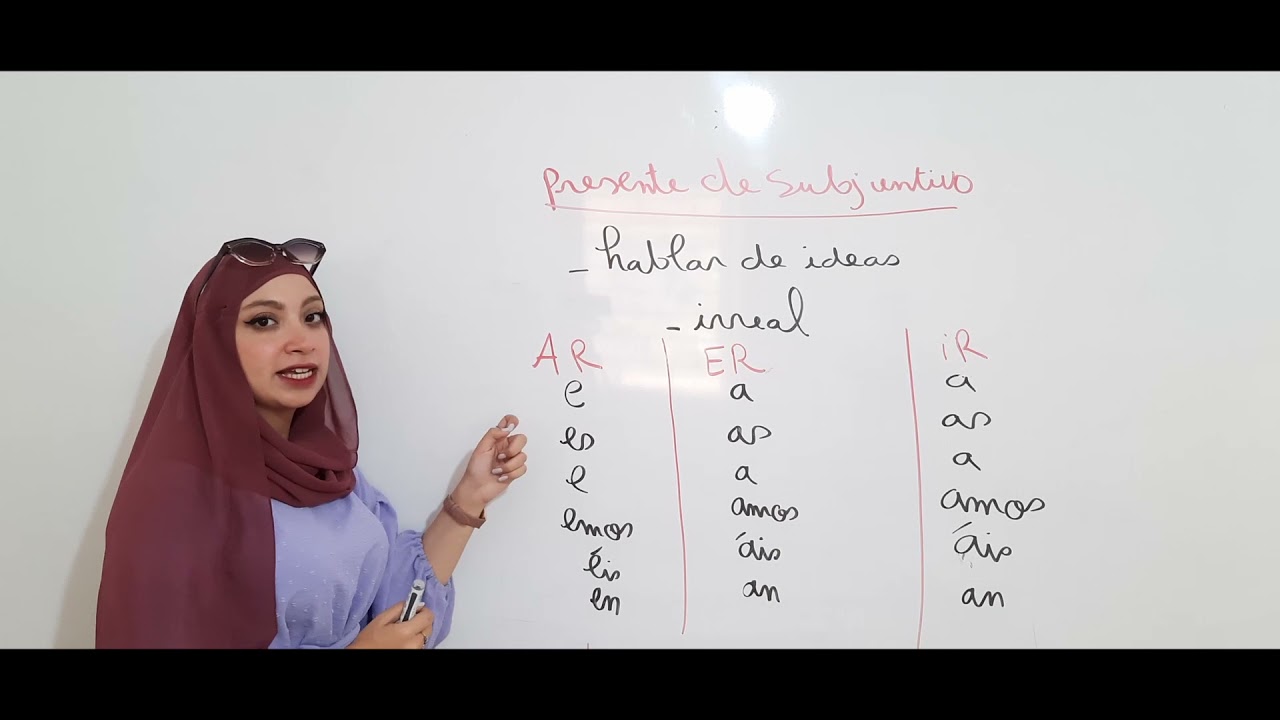 Presente de Subjuntivo
- hablar de ideas
- irreal
AR ER iR
e a a
es as as
e a a
emos amos amos
éis áis áis
en an an